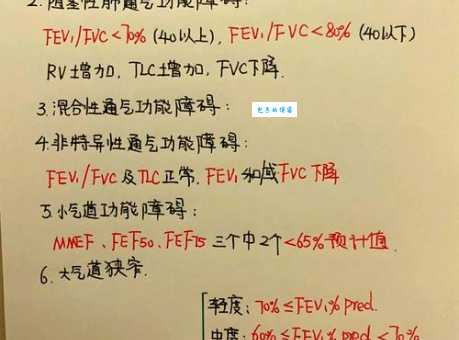 2.阻塞性肺通气功能障碍:
FEV₁/FVC<70% (40以上), FEV₁/FVC<80% (40以下)
RV增加, TLC增加, FVC下降.
3.混合性通气功能障碍:
4.非特异性通气功能障碍:
FEV₁/FVC及TLC正常, FEV₁和或FVC下降
5.小气道功能障碍:
MMEF、FEF50、FEF75 三个中2个<65%预计值.
6.大气道狭窄.
轻度: 70%≤FEV₁% pred.
中度: 60%≤FEV₁% pred<70%